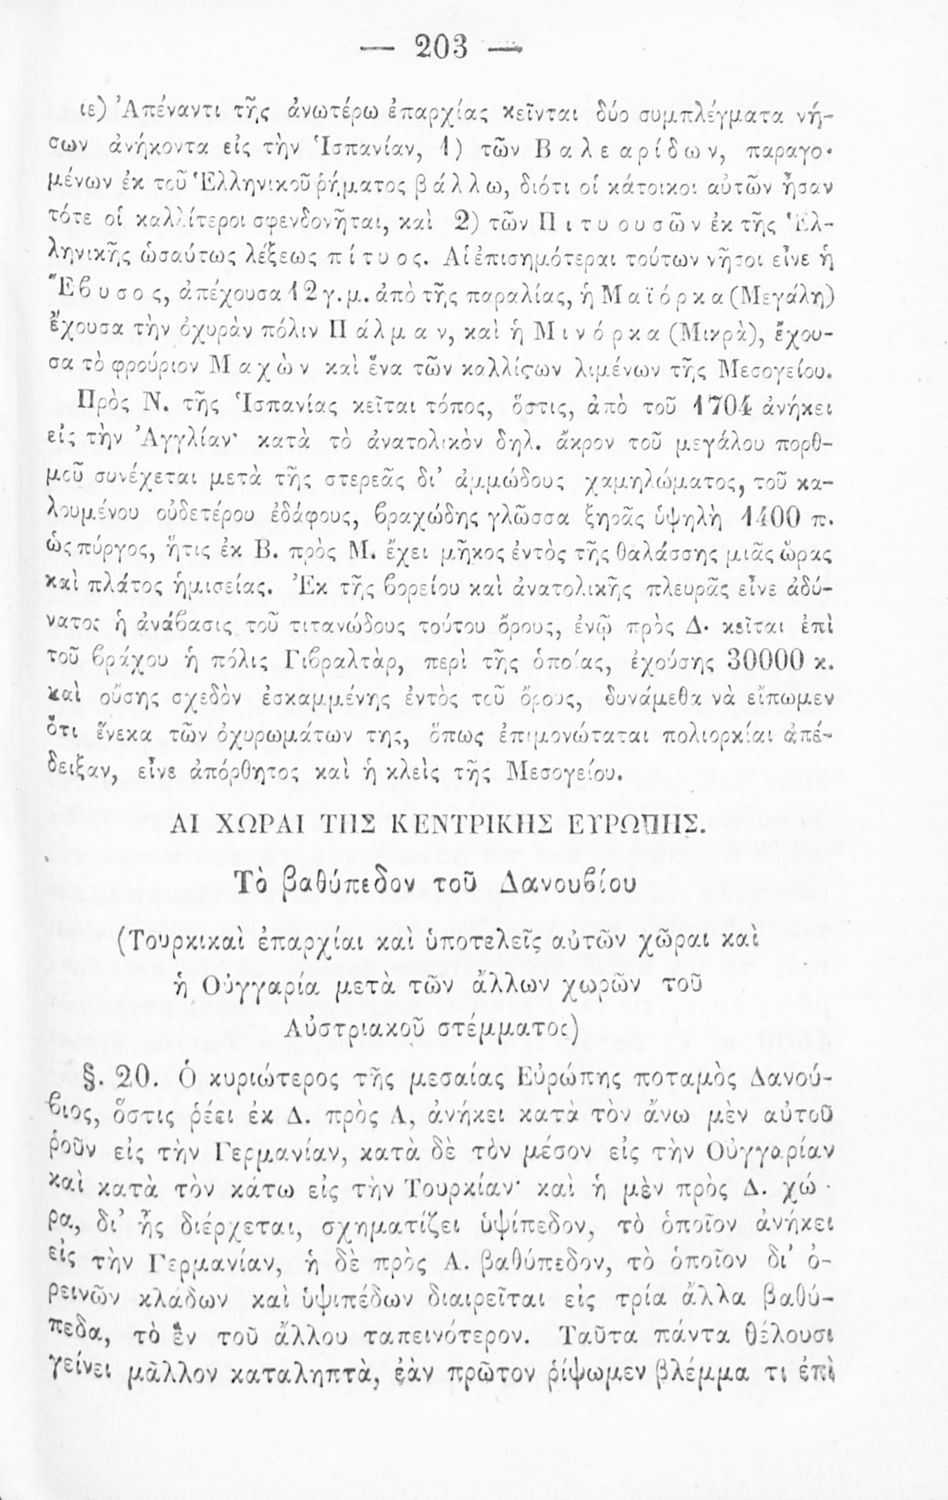 — 203 —
ιε) Ἀπέναντι τῆς ἀνωτέρω ἐπαρχίας κεῖνται δύο συμπλέγματα νή-
σων ἀνήκοντα εἰς τὴν Ἱσπανίαν, 1) τῶν Βαλεαρίδων, παραγο-
μένων ἐκ τοῦ Ἑλληνικοῦ ῥήματος βάλλω, διότι οἱ κάτοικοι αὐτῶν ἦσαν
τότε οἱ καλλίτεροι σφενδονῆται, καὶ 2) τῶν Πιτυουσῶν ἐκ τῆς Ἑλ-
ληνικῆς ὡσαύτως λέξεως πίτυος. Αἱ ἐπισημότεραι τούτων νῆσοι εἶνε ἡ
Ἔβυσος, ἀπέχουσα 12 γ.μ. ἀπὸ τῆς παραλίας, ἡ Μαϊόρκα (Μεγάλη)
ἔχουσα τὴν ὀχυρὰν πόλιν Πάλμαν, καὶ ἡ Μινόρκα (Μικρὰ), ἔχου-
σα τὸ φρούριον Μαχὼν καὶ ἕνα τῶν καλλίστων λιμένων τῆς Μεσογείου.
Πρὸς Ν. τῆς Ἱσπανίας κεῖται τόπος, ὅστις, ἀπὸ τοῦ 1704 ἀνήκει
εἰς τὴν Ἀγγλίαν· κατὰ τὸ ἀνατολικὸν δηλ. ἄκρον τοῦ μεγάλου πορθ-
μοῦ συνέχεται μετὰ τῆς στερεᾶς δι' ἀμμώδους χαμηλώματος, τοῦ κα-
λουμένου οὐδετέρου ἐδάφους, βραχώδης γλῶσσα ξηρᾶς ὑψηλὴ 1400 π.
ὡς πύργος, ἥτις ἐκ Β. πρὸς Μ. ἔχει μῆκος ἐντὸς τῆς θαλάσσης μιᾶς ὥρας
καὶ πλάτος ἡμισείας. Ἐκ τῆς βορείου καὶ ἀνατολικῆς πλευρᾶς εἶνε ἀδύ-
νατος ἡ ἀνάβασις τοῦ τιτανώδους τούτου ὄρους, ἐνῷ πρὸς Δ. κεῖται ἐπὶ
τοῦ βράχου ἡ πόλις Γιβραλτὰρ, περὶ τῆς ὁποίας, ἐχούσης 30000 κ.
καὶ οὔσης σχεδὸν ἐσκαμμένης ἐντὸς τοῦ ὄρους, δυνάμεθα νὰ εἴπωμεν
ὅτι ἕνεκα τῶν ὀχυρωμάτων της, ὅπως ἐπιμονώταται πολιορκίαι ἀπέ-
δειξαν, εἶνε ἀπόρθητος καὶ ἡ κλεὶς τῆς Μεσογείου.
ΑΙ ΧΩΡΑΙ ΤΗΣ ΚΕΝΤΡΙΚΗΣ ΕΥΡΩΠΗΣ.
Τὸ βαθύπεδον τοῦ Δανουβίου
(Τουρκικαὶ ἐπαρχίαι καὶ ὑποτελεῖς αὐτῶν χῶραι καὶ
ἡ Οὐγγαρία μετὰ τῶν ἄλλων χωρῶν τοῦ
Αὐστριακοῦ στέμματος)
§. 20. Ὁ κυριώτερος τῆς μεσαίας Εὐρώπης ποταμὸς Δανού-
βιος, ὅστις ῥέει ἐκ Δ. πρὸς Α, ἀνήκει κατὰ τὸν ἄνω μὲν αὐτοῦ
ῥοῦν εἰς τὴν Γερμανίαν, κατὰ δὲ τὸν μέσον εἰς τὴν Οὐγγαρίαν
καὶ κατὰ τὸν κάτω εἰς τὴν Τουρκίαν· καὶ ἡ μὲν πρὸς Δ. χώ-
ρα, δι' ἧς διέρχεται, σχηματίζει ὑψίπεδον, τὸ ὁποῖον ἀνήκει
εἰς τὴν Γερμανίαν, ἡ δὲ πρὸς Α. βαθύπεδον, τὸ ὁποῖον δι' ὀ-
ρεινῶν κλάδων καὶ ὑψιπέδων διαιρεῖται εἰς τρία ἄλλα βαθύ-
πεδα, τὸ ἓν τοῦ ἄλλου ταπεινότερον. Ταῦτα πάντα θέλουσι
γείνει μᾶλλον καταληπτὰ, ἐὰν πρῶτον ῥίψωμεν βλέμμα τι ἐπὶ